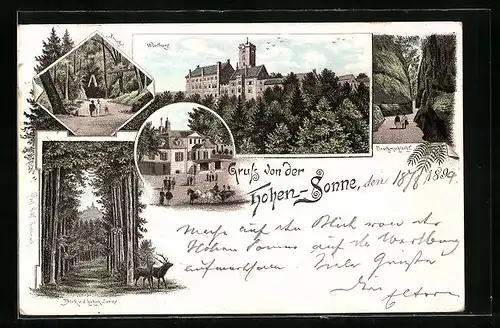 Wartburg
Drachenschlucht
Gruß von der
Hohen-Sonne, den 18/8 1894.
auf den Blick von der
Hohen Sonne auf die Wartburg
aufmerksam. Viele Grüße
Eltern
Blick v. d. hohen Sonne.